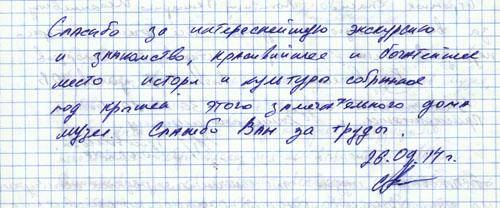 Спасибо за интереснейшую экскурсию
и знакомство, красивейшее и богатейшее
место истори и культуры собранное
под крышей этого замечательного дома
музея. Спасибо Вам за труды.
28.09.14г.